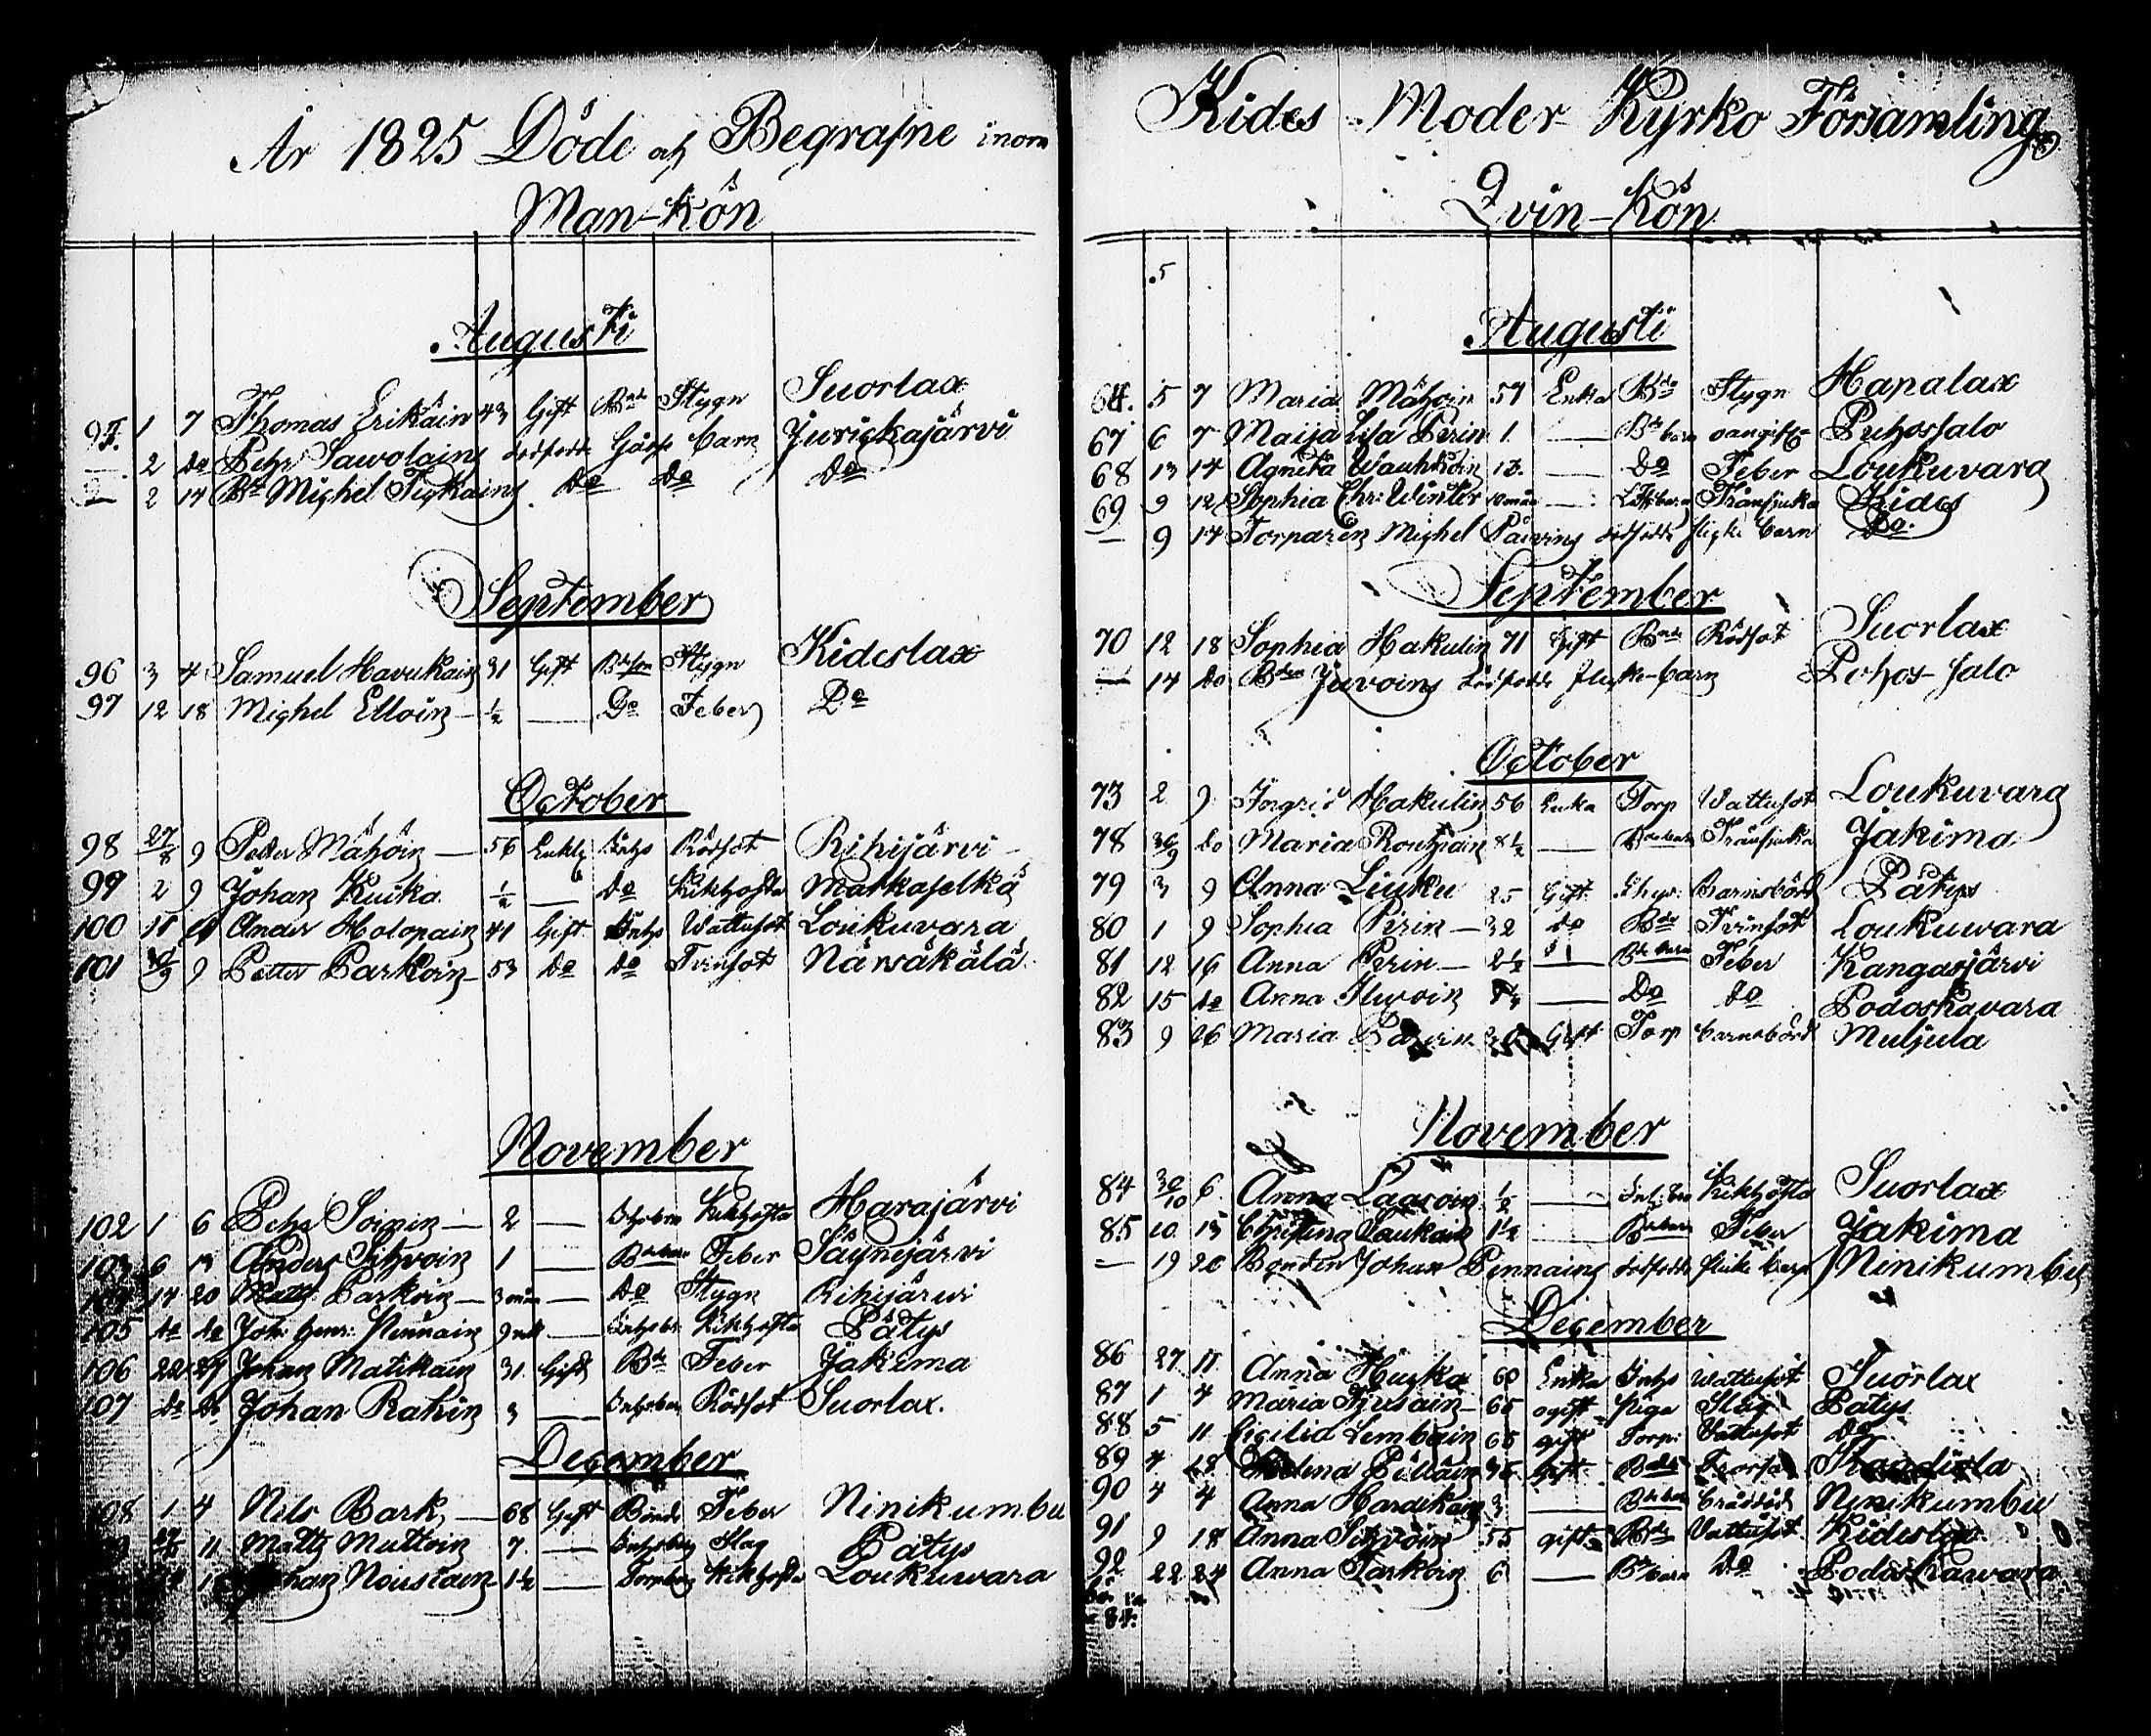 År 1825 Döde och Begrafne inom
Man-Kön
Augusti
95. 1 7 Thomas Erikäin 43 Gift Bde Stygn Suorlax
— 2 do Pehr Sawolains dödfödde Gåsse barn Jurickajärvi
— 2 14 Bd Michel Do Do Do
September
96 3 4 Samuel Havukain 31 Gift Bdeson Stygn Kideslax
97 12 18 Michel Elloin — ½ — Do Feber Do
October
98 27/8 9 Petter Mähöin — 56 Enkl Inhs Rödsot Rihijärvi
99 2 9 Johan Kuika ½ — do Kikhosta Matkaselkä
100 11 Ander Holopain 41 Gift Inhs Wattusot Loukuvara
101 30/9 9 Petter Parkoin 53 do do Tvinsot Närsäkälä
November
102 1 6 Pehr Soinin — 2 — Kikhosta Harajärvi
103 6 13 Anders Sihvoin 1 — Bdebarn Feber Säynejärvi
104 14 20 Matts Parkoin — 3 mån — Do Stygn Rihijärvi
105 do do Joh: Henr: — Kikhosta Pätys
106 22 27 Johan Matikain 31 Gift Bde Feber Jakima
107 do do Johan Rahin 3 — Inhsbarn Rödsot Suorlax.
December
108 1 4 Nils Bark, — 68 Gift Bonde Feber Ninikumbu
11 Matts Muttoin 7. — Slag Pätys
Johan Nousiain 1½ — Torpbarn Kikhosta Loukuwara
Kides Moder Kyrko Församling
Qvin-Kön
Augusti
5 7 Maria Mähoin 57 Enka Bde Stygn Hapalax
67 6 7 Maija Lisa Pirin 1. — Bdebarn oangifven Puhossalo
68 13 14 Agneta — Do Feber Loukuvara
69 9 12 Sophia Chr: Winter 10 mån — barn Tränsjuka Kides
— 9 14 Torparen Michel Päivins dödfödde flicke barn Do.
September
70 12 18 Sophia Hakulin 71 Gift Bde Rödsot Suorlax
— 14 do Bden Juvoins dödfödde flicke-barn Pohos-salo
October
73 2 9 Ingrid Hakulin 56 Enka Torp Wattusot Loukuvara
78 30/9 do Maria 8½ — Bdebarn Tränsjuka Jakima
79 3 9 Anna Liuku 25 Gift Inhys. Barnsbörd Pätys
80 1 9 Sophia Pirin — 32 do Bde Tvinsot Loukuwara
81 12 16 Anna Pirin — 2½ — Bdebarn Feber Kangasjärvi
82 15 do Anna — Do do Podoskavara
83 9 26 Maria Gift Torp barnsbörd Muljula
November
84 30/10 6. Anna Laasoin ½ — Kikhosta Suorlax
85 10. 13 Christina Laukain 1½ — Bdebarn Feber Jakima
— 19 20 Bonden Johan Pennains dödfödde flicke barn Ninikumbu
December
86 27. 11. Anna Huska 60 Enka Inhs Wattusot Suorlax
87 1 4 Maria 65 ogift piga Slag Pätys
88 5 11 Cicilia Lemboin 65 gift Torp: Vattusot do
89 4 18 Helena Gift
90 4 4 Anna Hardikain 3 — Bdebarn bråddöd Ninikumbu
91 9 18 Anna Sihvoin 55 gift Bde Vattusot Kideslax
92. 22 24 Anna Parkoin 6 — Bdebarn Do Podoskawara